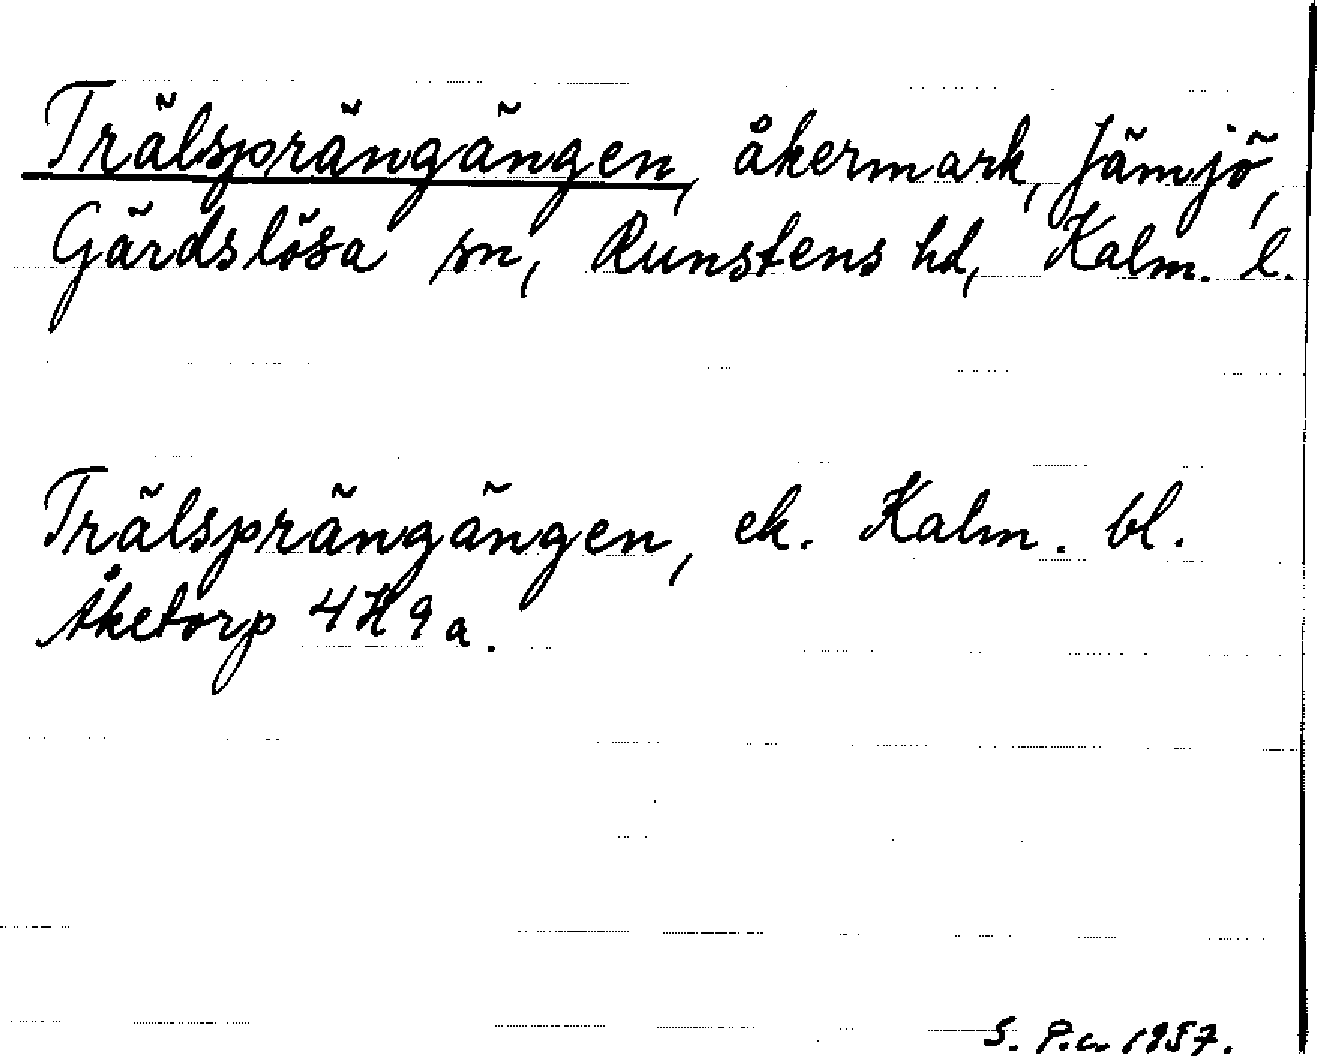 Trälsprängängen, åkermark, Jämjö,
Gärdslösa sn, Runstens hd, Kalm. l.
Trälsprängängen, ek. Kalm. bl.
Åketorp 4H9a.
S. P.a. 1957.